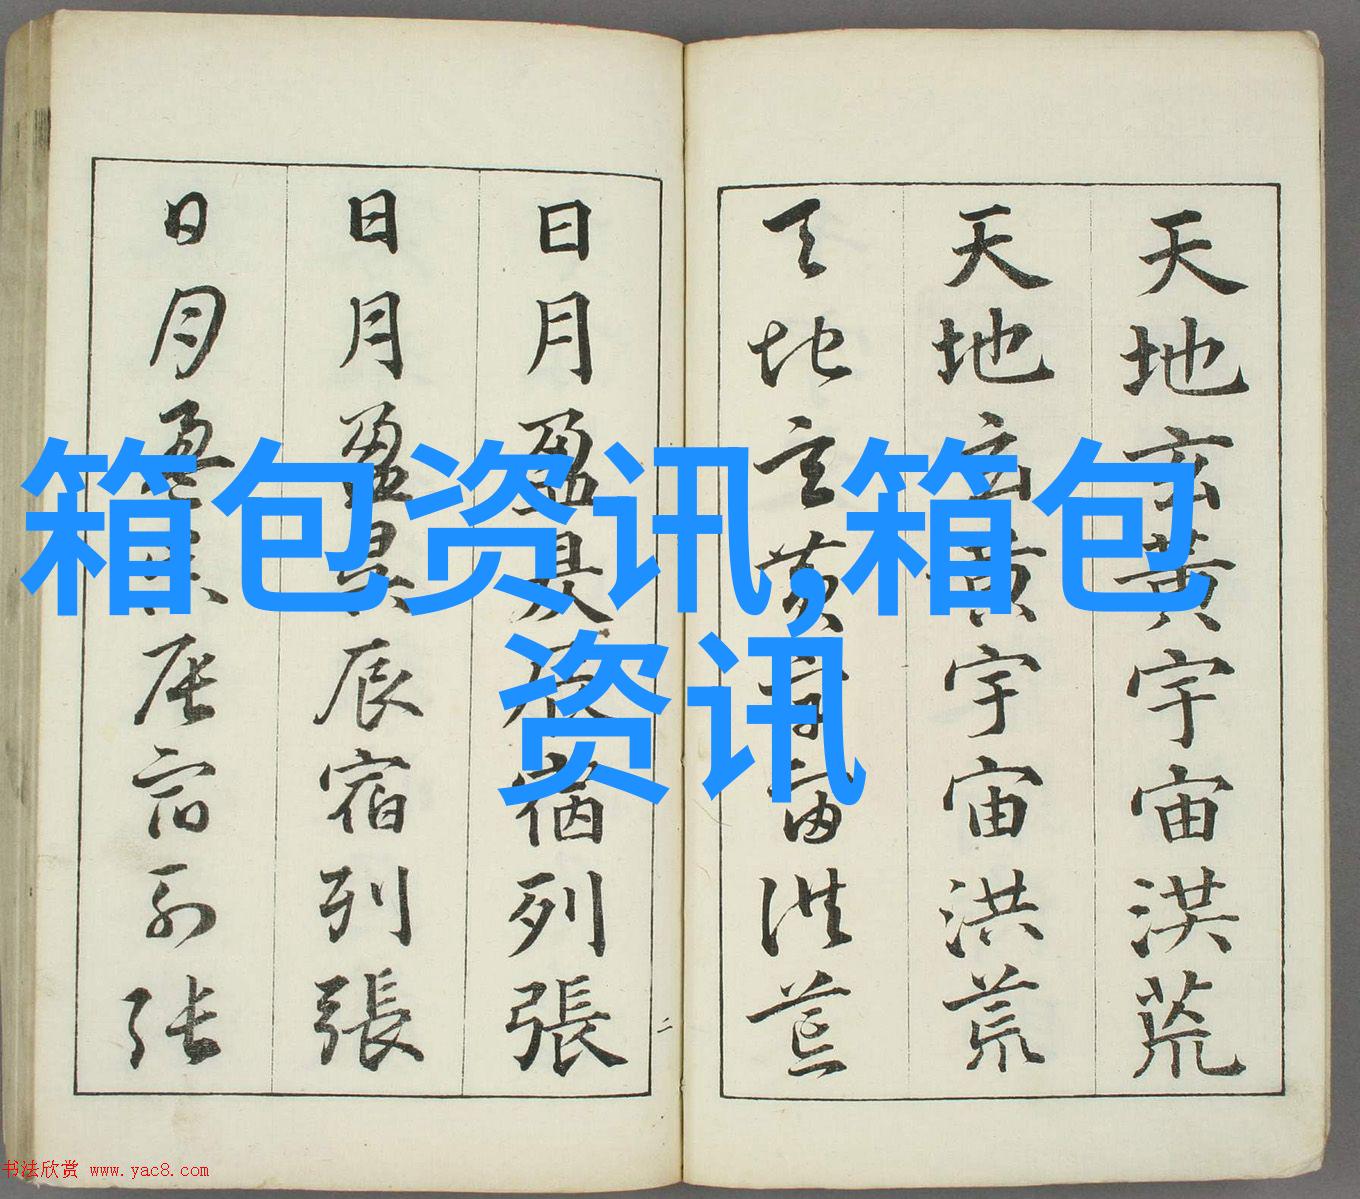 天地玄黃宇宙洪荒
天地玄黃宇宙洪荒
天地玄黃宇宙洪荒
日月盈昃辰宿列張
日月盈昃辰宿列張
日月盈昃辰宿列張
二
箱包资讯,箱包
资讯
书法欣赏 www.yac8.com